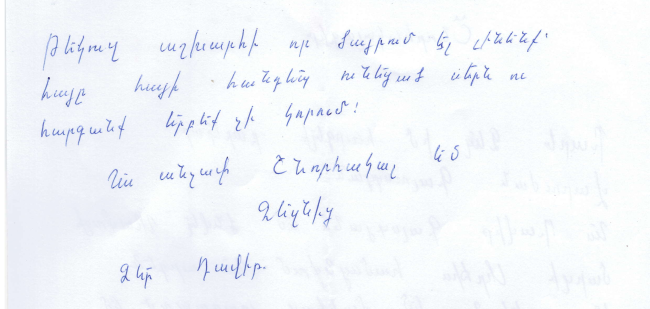 Թեկուզ աշխարհի որ ծայրում էլ լինենք՝
հայը հայի հանդեպ ունեցած սերն ու
հարգանք երբեք չի կորում!
Ես անչափ Շնորհակալ եմ
Ձեզնից
Ձեր Դավիթ.